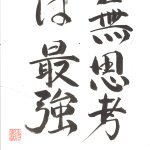 無思考
は最強